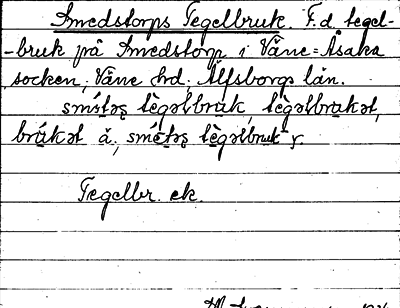 Smedstorps Tegelbruk. F.d. tegel-
-bruk på Smedstorp i Väne=Åsaka
socken, Väne hrd, Älfsborgs län.
tègəlbruk, tègəlbrukət,
brúkət ä., tègəlbruk y.
Tegelbr. ek.